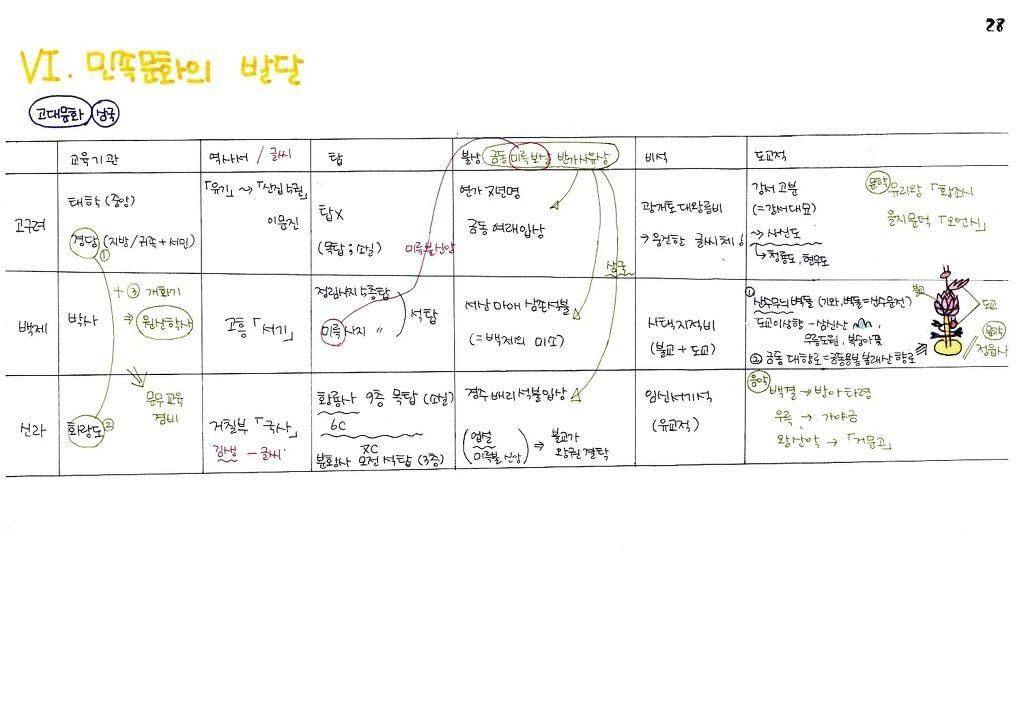 28
VI. 민족문화의 발달
고대문화 삼국
교육기관
역사서 / 글씨
탑
불상 금동 미륵보살 반가사유상
비석
도교적
고구려
태학 (중앙)
경당 (지방/귀족+서민)
①
「유기」 ~→ 「신집 5권」
이문진
탑X
(목탑 ; 소실)
미륵불신앙
연가 7년명
금동 여래입상
삼국
광개토대왕릉비
→ 웅건한 글씨체
강서 고분
(=강서대묘)
~→ 사신도
↳ 청룡도, 현무도
문학 유리왕 「황조시
을지문덕 「오언시」
백제
박사
+ ③ 개화기
⇒ 원산학사
고흥 「서기」
정림사지 5층탑
미륵사지 〃
석탑
서산 마애 삼존석불
(=백제의 미소)
사택지적비
(불교+도교)
① 산수무늬 벽돌 (기와, 벽돌=산수문전)
도교이상향 - 삼신산,
무릉도원, 복숭아꽃
② 금동 대향로=금동용봉봉래산 향로
불교
도교
음악
정읍사
신라
화랑도 ②
문무 교육
겸비
거칠부 「국사」
김생 - 글씨
황룡사 9층 목탑 (소실)
6C
7C
분황사 모전 석탑 (3층)
경주 배리석불입상
(업설
미륵불 신앙) ⇒ 불교가
왕권 결탁
임신서기석
(유교적)
음악 백결 → 방아타령
우륵 → 가야금
왕산악 → 「거문고」